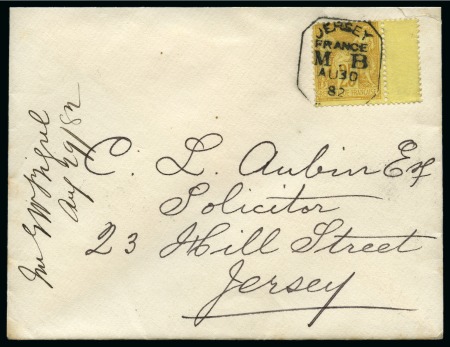 JERSEY
FRANCE
M B
AU 30
82
C. L. Aubin Esq
Solicitor
23 Hill Street
Jersey
Aug 29/82